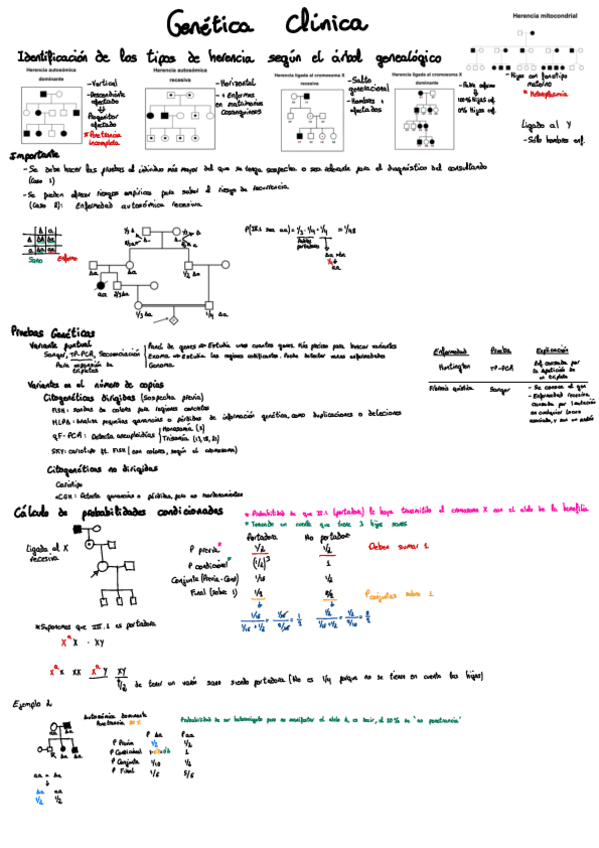 Genética Clínica
Identificación de los tipos de herencia según el árbol genealógico
Herencia autosómica dominante
- Vertical
- Descendiente afectado
⇓
Progenitor afectado
* Penetrancia incompleta
Herencia autosómica recesiva
- Horizontal
- Enfermos en matrimonios consanguíneos
Herencia ligada al cromosoma X recesiva
- Salto generacional
- Hombres afectados
Herencia ligada al cromosoma X dominante
- Padre enfermo
100% Hijas enf.
0% Hijos enf.
Herencia mitocondrial
- Hijos con fenotipo materno
* Heteroplasmia
Ligado al Y
- Sólo hombres enf.
Importante
- Se debe hacer las pruebas al individuo más mayor del que se tenga sospecha o sea relevante para el diagnóstico del consultando
(Caso 1)
- Se pueden ofrecer riesgos empíricos para saber el riesgo de recurrencia.
(Caso 2): Enfermedad autosómica recesiva
A a
A AA Aa
a Aa aa
Sano Enfermo
Aa Aa 1/2 Aa
aa 2/3 Aa
1/3 Aa 1/4 Aa
Pruebas Genéticas
Variante puntual
Sanger, TP-PCR, Secuenciación
Para expansión de tripletes
Panel de genes ⇒ Estudia unos cuantos genes. Más preciso para buscar variantes
Exoma ⇒ Estudia las regiones codificantes. Puede detectar varias enfermedades
Genoma
Enfermedad Prueba Explicación
Huntington TP-PCR Enf. causada por la repetición de un triplete
Fibrosis quística Sanger - Se conoce el gen
- Enfermedad recesiva causada por 1 mutación
Variantes en el número de copias
Citogenéticas dirigidas (Sospecha previa)
FISH: sondas de colores para regiones concretas
MLPA: Analiza pequeñas ganancias o pérdidas de información genética, como duplicaciones o deleciones
QF-PCR: Detecta aneuploidías
Monosomía (X)
Trisomía (13, 18, 21)
SKY: cariotipo tt. FISH (con colores, según el cromosoma)
Citogenéticas no dirigidas
Cariotipo
aCGH: Detecta ganancias o pérdidas, pero no reordenamientos
Cálculo de probabilidades condicionadas
* Probabilidad de que II.1 (portadora) le haya transmitido el cromosoma X con el alelo de la hemofilia
* Teniendo en cuenta que tiene 3 hijos sanos
Ligada al X recesiva
Portadora No portadora
P previa* 1/2 1/2 Deben sumar 1.
P condicional* (1/2)³ 1
Conjunta (Previa · Cond) 1/16 1/2
Final (sobre 1) 1/9 8/9 P conjuntas sobre 1
*Suponemos que III.1 es portadora
XᵃX · XY
XᵃX XX XᵃY XY
1/2 de tener un varón sano siendo portadora (No es 1/4 porque no se tienen en cuenta las hijas)
Ejemplo 2
Autosómica dominante
Penetrancia 80%
Probabilidad de ser heterocigoto pero no manifestar el alelo A, es decir, el 20% de "no penetrancia"
P Aa P aa
P Previa 1/2 1/2
P Conjunta 1/10 1/2
P Final 1/6 5/6
aa × Aa
Aa aa
1/2 1/2